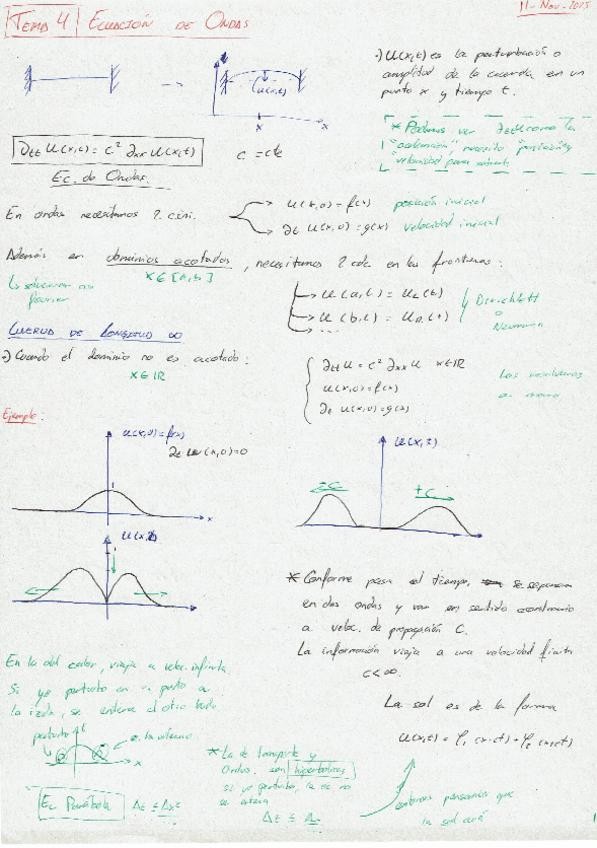 11-Nov-2015
TEMA 4 | ECUACIÓN DE ONDAS
·) U(x,t) es la perturbación o
amplitud de la cuerda en un
punto x y tiempo t.
U(x,t)
x
* Podemos ver ∂ttU como la
"aceleración" necesito "posición y
velocidad para
∂tt U(x,t) = c² ∂xx U(x,t)
c = cte
Ec. de Ondas.
En ondas necesitamos 2 c.ini.
U(x,0) = f(x) posición inicial
∂t U(x,0) = g(x) velocidad inicial
Además en dominios acotados, necesitamos 2 cdc. en las fronteras:
x ∈ [a,b]
↳ solución en
Fourier
U(a,t) = UL(t)
U(b,t) = UR(t)
...
Dirichlet
o
Neumann
CUERDA DE LONGITUD ∞
·) Cuando el dominio no es acotado:
x ∈ ℝ
∂tt U = c² ∂xx U x ∈ ℝ
U(x,0) = f(x)
∂t U(x,0) = g(x)
Las resolvemos
Ejemplo:
U(x,0) = f(x)
∂t U(x,0) = 0
1
x
U(x,t)
-c
+c
U(x,t)
* Conforme pasa el tiempo, se separan
en dos ondas y van en sentido contrario
a veloc. de propagación C.
La información viaja a una velocidad finita
c < ∞.
En la del calor, viaja a veloc. infinita.
Si yo perturbo en un punto a
la izda, se entera el otro lado
perturbo
t
x
La sol es de la forma
U(x,t) = φ₁(x-ct) + φ₂(x+ct)
* La de transporte y
Ondas. son hiperbólicas
si yo perturbo, la no
se entera
Ec. Parábola
Δt ≤ Δx²
Δt ≤
pensamos que
la sol será